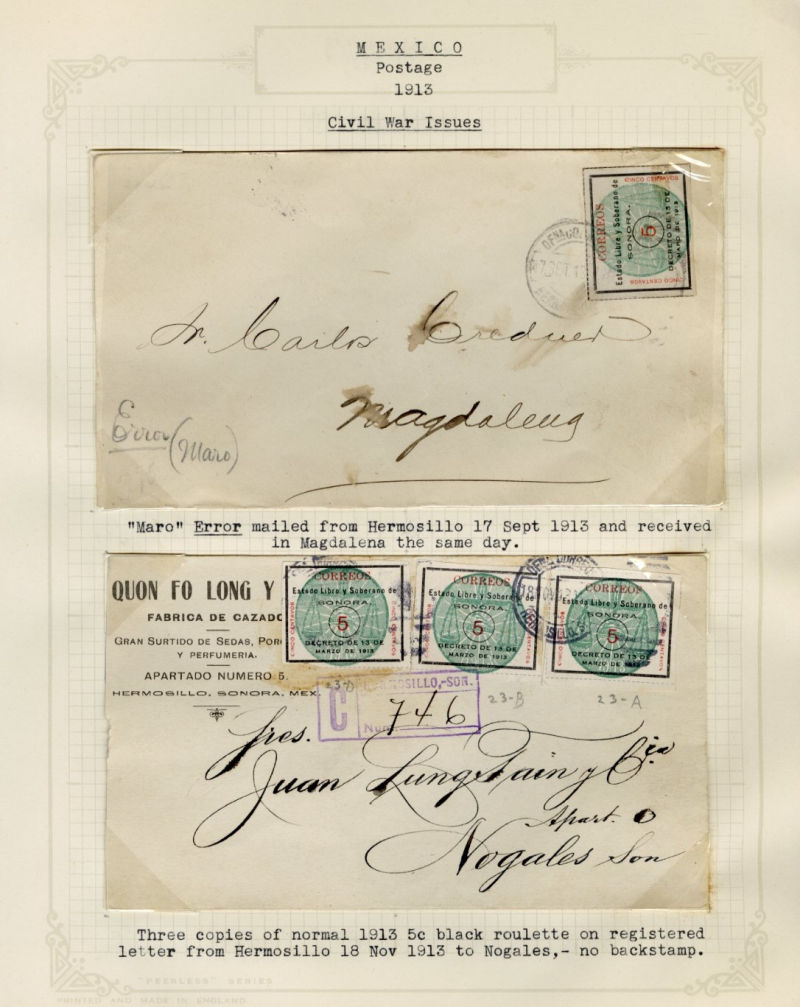 MEXICO
Postage
1913
Civil War Issues
CINCO CENTAVOS
CORREOS
Estado Libre y Soberano de
SONORA.
5
DECRETO DE 13 DE
MARO DE 1913
CINCO CENTAVOS
Sr. Carlos
Magdalena
Error (Maro)
"Maro" Error mailed from Hermosillo 17 Sept 1913 and received
in Magdalena the same day.
QUON FO LONG Y
FABRICA DE CAZADO
GRAN SURTIDO DE SEDAS,
Y PERFUMERIA.
APARTADO NUMERO 5.
HERMOSILLO, SONORA, MEX.
CORREOS
Estado Libre y Soberano de
SONORA.
5
DECRETO DE 13 DE
MARZO DE 1913
CINCO CENTAVOS
CINCO CENTAVOS
CORREOS
Estado Libre y Soberano
SONORA.
5
DECRETO DE 13 DE
MARZO DE 1913
CORREOS
Estado Libre y Soberano de
SONORA.
5
DECRETO DE 13 DE
MARZO DE 1913
23-D
23-B
23-A
HERMOSILLO,-SON.
C
Num
746
Sres.
Juan Lung Tain y Cia
Apart. 0
Nogales Son
Three copies of normal 1913 5c black roulette on registered
letter from Hermosillo 18 Nov 1913 to Nogales,- no backstamp.
"PEERLESS" SERIES
PRINTED AND MADE IN ENGLAND